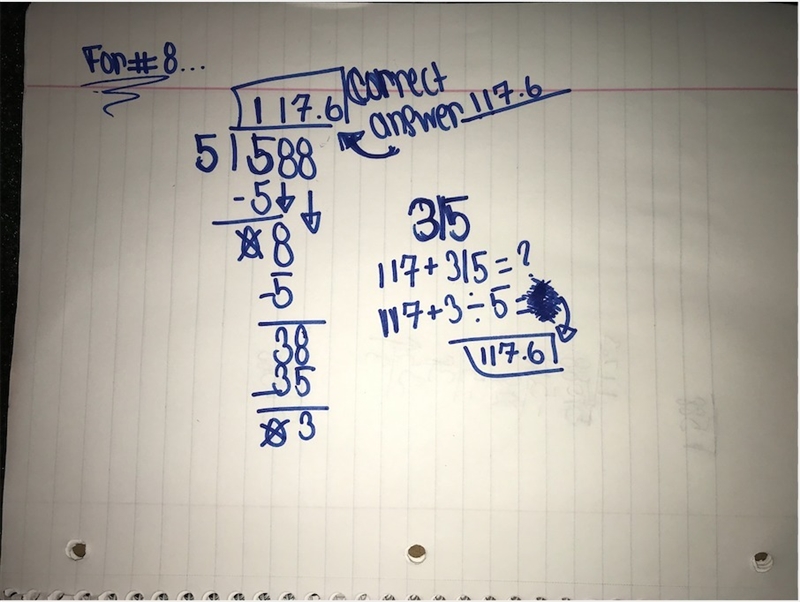 For #8...
117.6 correct
answer 117.6
5 588
-5
0 8
-5
38
-35
0 3
3/5
117+3/5=?
117+3÷5=
117.6